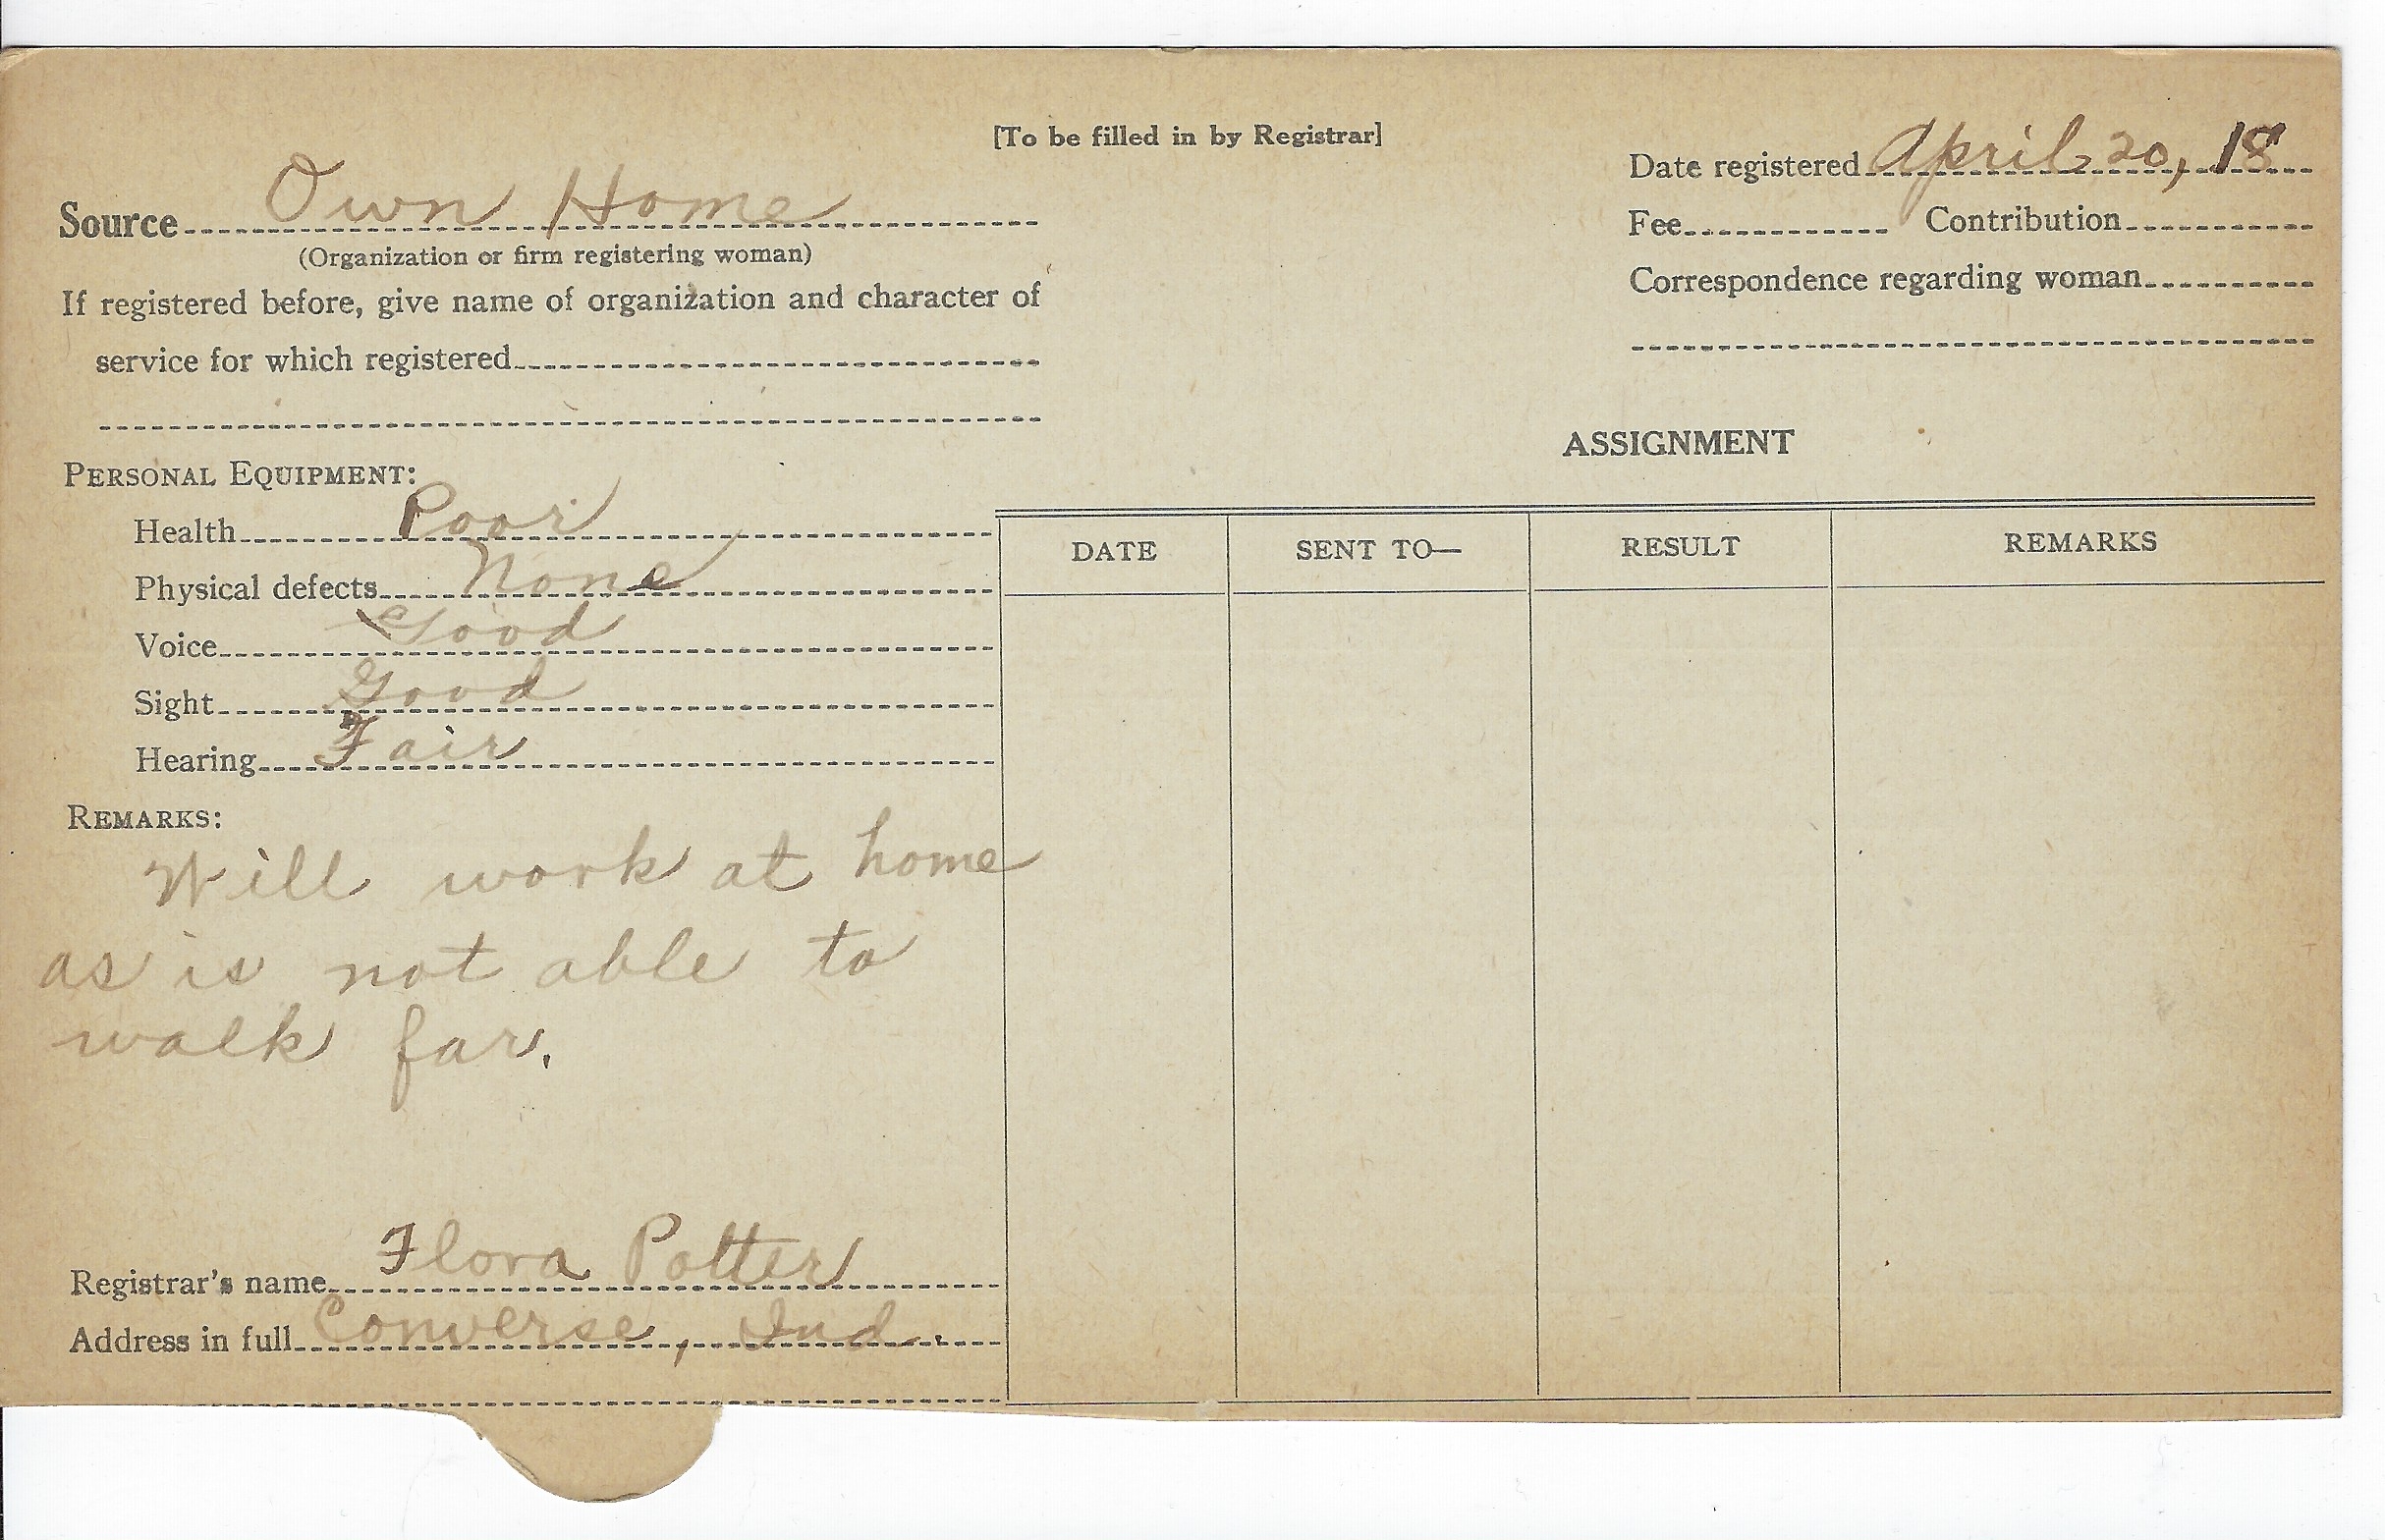 [To be filled in by Registrar]
Date registered April 20, 18
Source Own Home
(Organization or firm registering woman)
Fee Contribution
If registered before, give name of organization and character of
service for which registered
Correspondence regarding woman
PERSONAL EQUIPMENT:
Health Poor
Physical defects None
Voice Good
Sight Good
Hearing Fair
REMARKS:
Will work at home
as is not able to
walk far.
Registrar's name Flora Potter
Address in full Converse, Ind.
ASSIGNMENT
DATE SENT TO— RESULT REMARKS